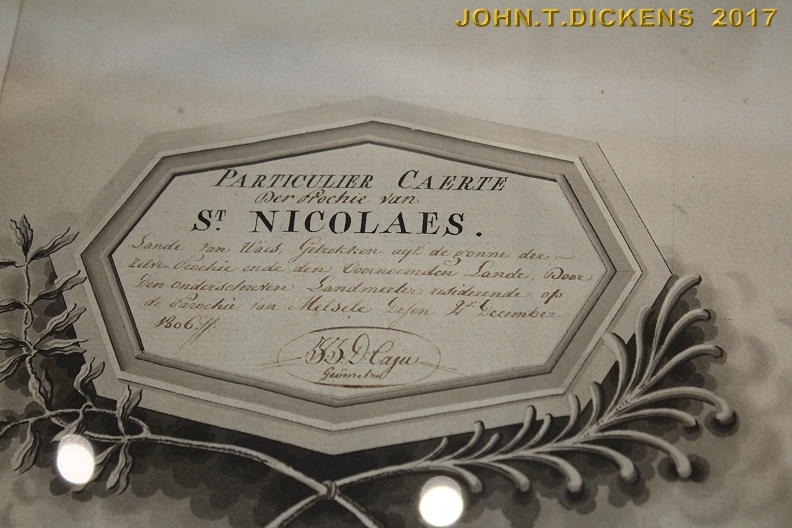 JOHN.T.DICKENS 2017
PARTICULIER CAERTE
Der Prochie van
ST. NICOLAES.
Lande van Waes, Getrokken uyt de gonne der
zelve Prochie ende den Voornoemden Lande, Door
Den onderschreven Landmeeter residerende op
de Parochie van Melsele Desen 4e December
1806
J.J. De Caju
Geömeter